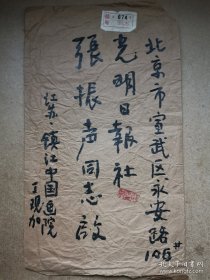 北京市宣武区永安路106号
光明日报社
张振声同志啟
江苏·镇江中国画院
丁观加
674